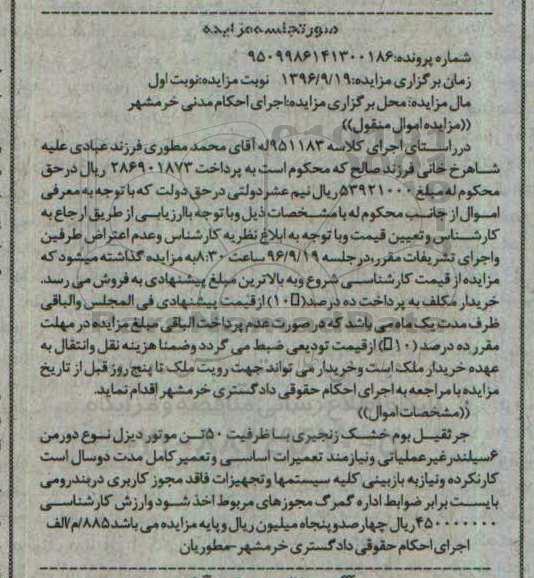 صورتجلسه مزایده
شماره پرونده:۹۵۰۹۹۸۶۱۴۱۳۰۰۱۸۶
زمان برگزاری مزایده:۱۳۹۶/۹/۱۹ نوبت مزایده:نوبت اول
مال مزایده: محل برگزاری مزایده:اجرای احکام مدنی خرمشهر
((مزایده اموال منقول))
درراستای اجرای کلاسه ۹۵۱۱۸۳له آقای محمد مطوری فرزند عبادی علیه
شاهرخ خانی فرزند صالح که محکوم است به پرداخت ۲۸۶۹۰۱۸۷۳ ریال درحق
محکوم له مبلغ ۵۳۹۲۱۰۰۰ریال نیم عشر دولتی درحق دولت که با توجه به معرفی
اموال از جانب محکوم له با مشخصات ذیل وبا توجه باارزیابی از طریق ارجاع به
کارشناس وتعیین قیمت وبا توجه به ابلاغ نظریه کارشناس وعدم اعتراض طرفین
واجرای تشریفات مقرر،درجلسه ۹۶/۹/۱۹ ساعت ۸:۳۰به مزایده گذاشته میشود که
مزایده از قیمت کارشناسی شروع وبه بالاترین مبلغ پیشنهادی به فروش می رسد.
خریدار مکلف به پرداخت ده درصد(۱۰) از قیمت پیشنهادی فی المجلس والباقی
ظرف مدت یک ماه می باشد که در صورت عدم پرداخت الباقی مبلغ مزایده در مهلت
مقرر ده درصد (۱۰) ازقیمت تودیعی ضبط می گردد وضمنا هزینه نقل وانتقال به
عهده خریدار ملک است وخریدار می تواند جهت رویت ملک تا پنج روز قبل از تاریخ
مزایده با مراجعه به اجرای احکام حقوقی دادگستری خرمشهر اقدام نماید.
((مشخصات اموال))
جرثقیل بوم خشک زنجیری با ظرفیت ۵۰تن موتور دیزل نوع دورمن
۶سیلندر غیر عملیاتی ونیازمند تعمیرات اساسی وتعمیر کامل مدت دوسال است
کارنکرده ونیازبه بازبینی کلیه سیستمها وتجهیزات فاقد مجوز کاربری دربندرومی
بایست برابر ضوابط اداره گمرگ مجوزهای مربوط اخذ شود وارزش کارشناسی
۴۵۰۰۰۰۰۰۰ریال چهارصدوپنجاه میلیون ریال وپایه مزایده می باشد ۸۸۵/م/الف
اجرای احکام حقوقی دادگستری خرمشهر-مطوریان